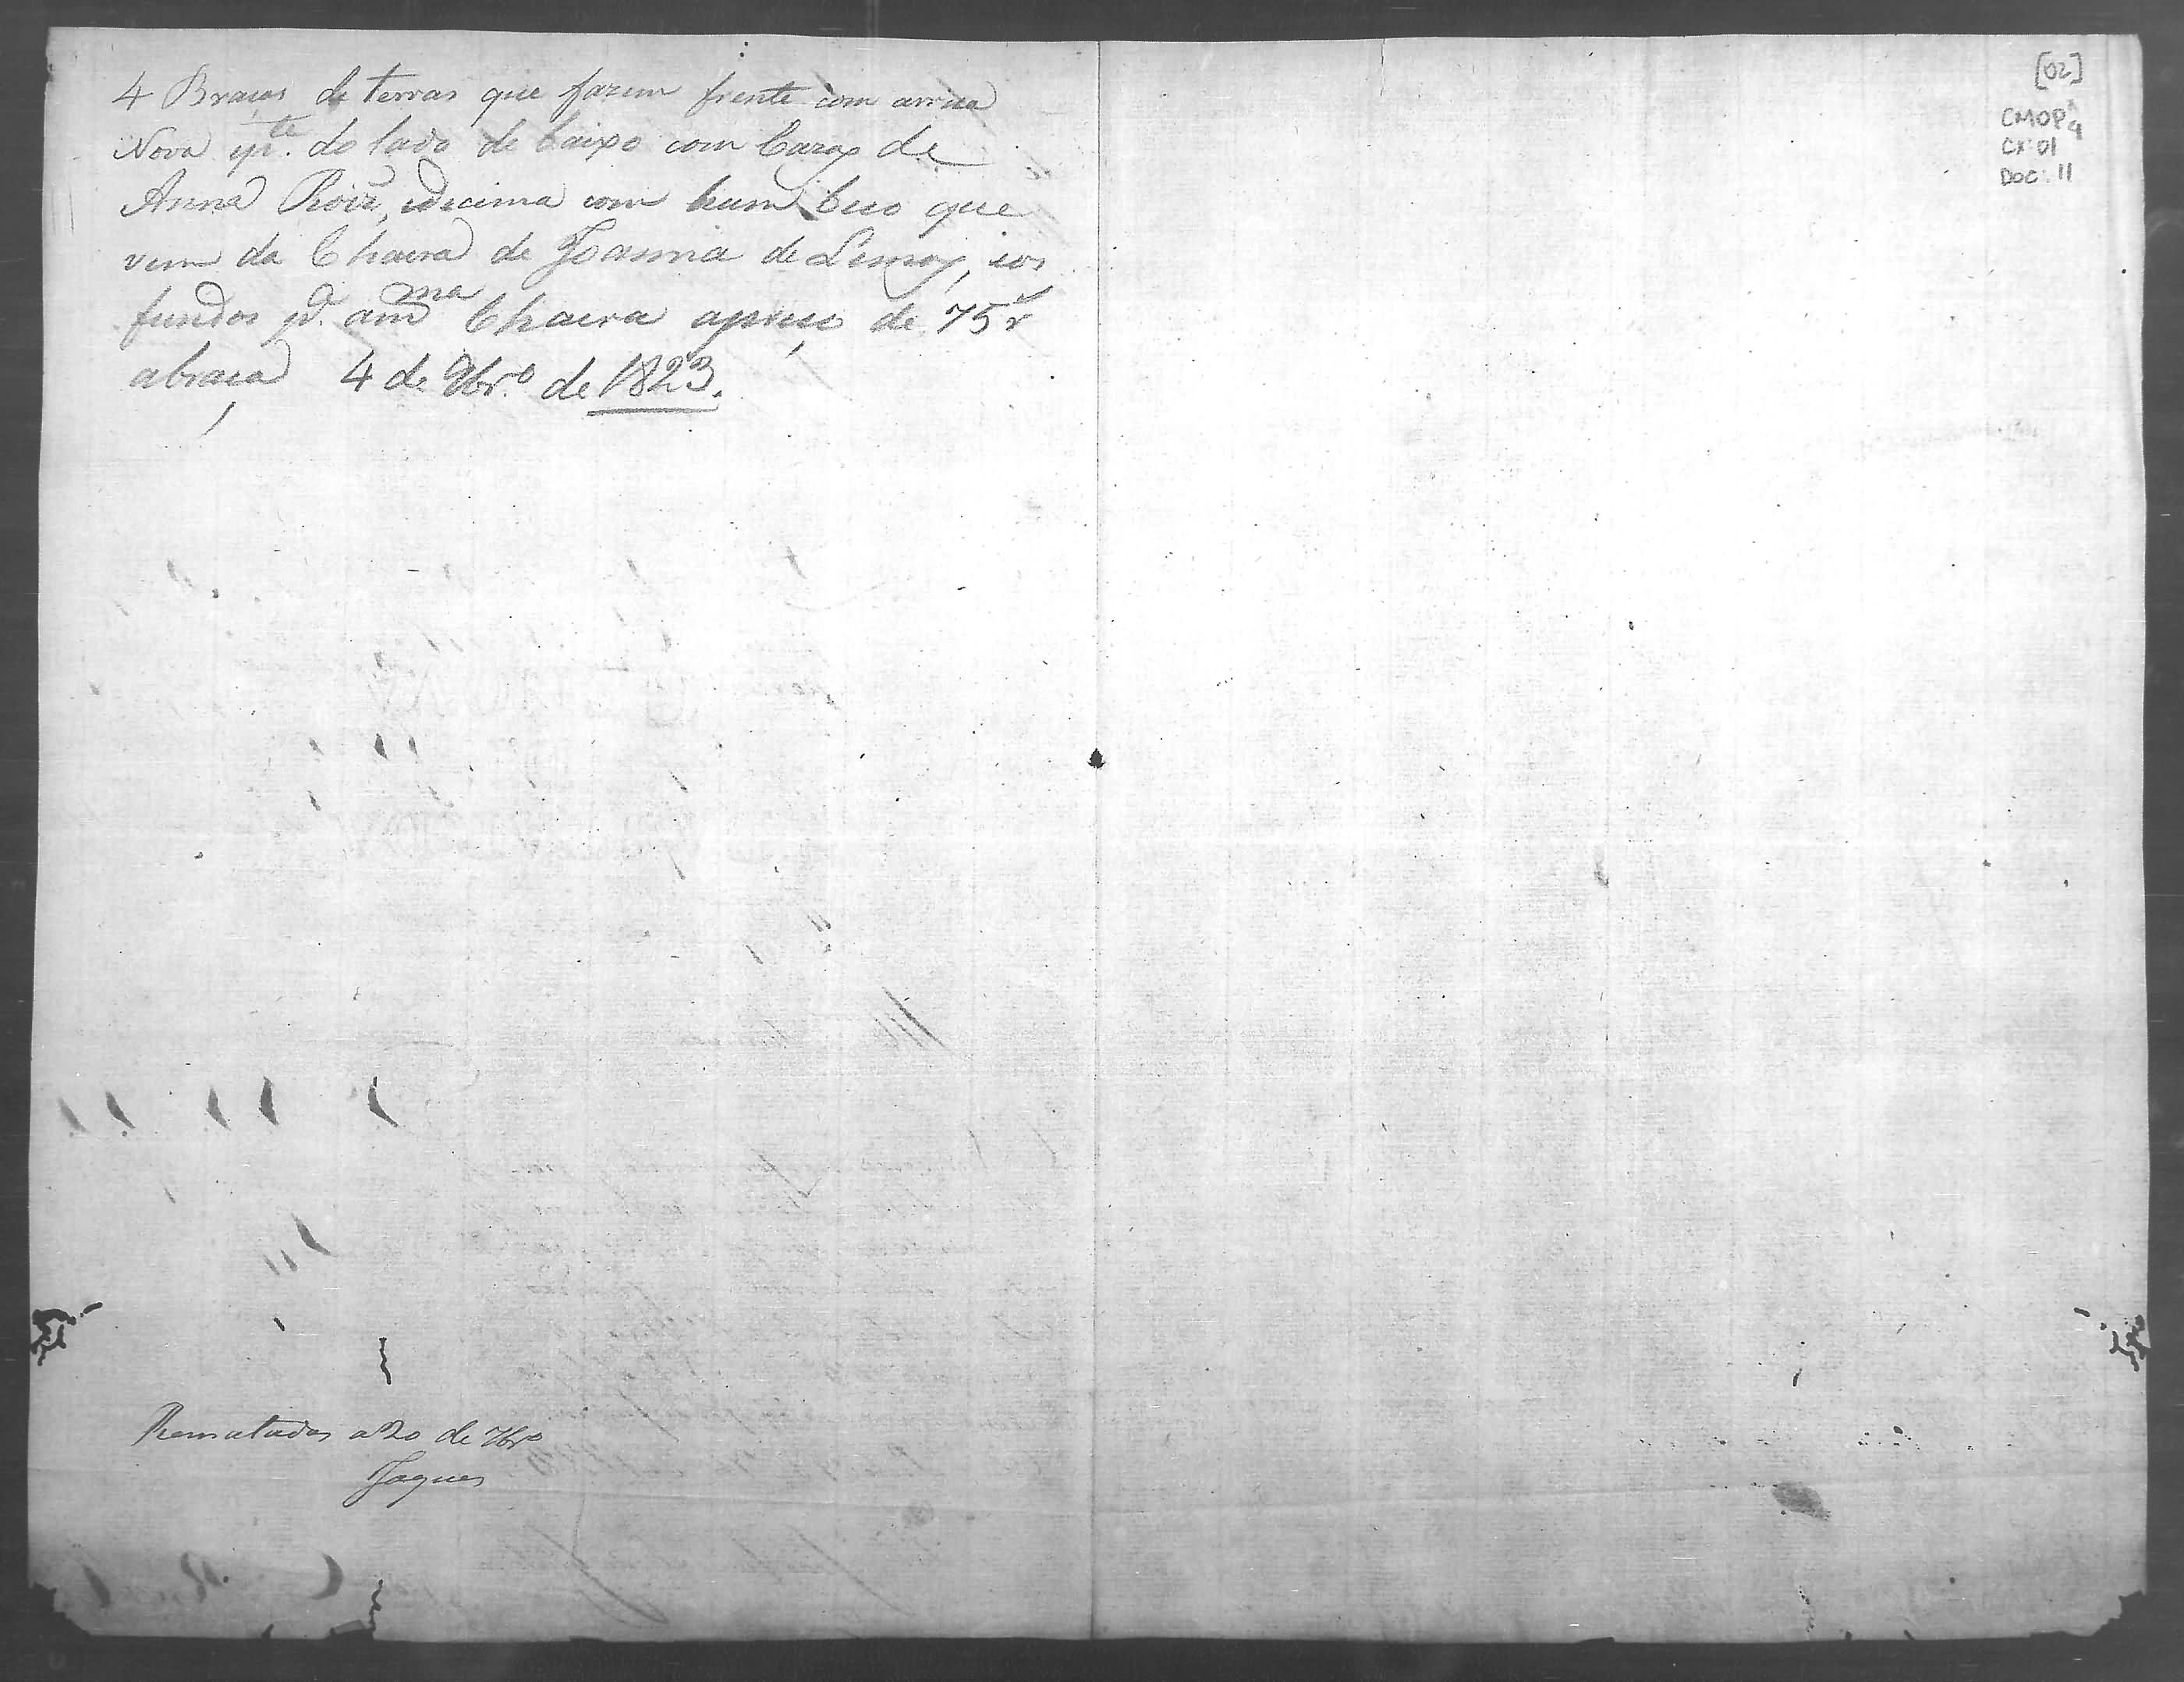 4 Braças de terras que fazem frente com arrua
Nova p.te do lado de baixo com Cazas de
Anna Roiz, edecima com hum beco que
vem da Chacra de Joanna de Lemos, eos
fundos p.a am.ma Chacra apreço de 75 r
abraça 4 de 9br.o de 1823.
Rematadas a 20 de 9br.o
Jaques
[02]
CMOP
CX: 01
DOC: 11